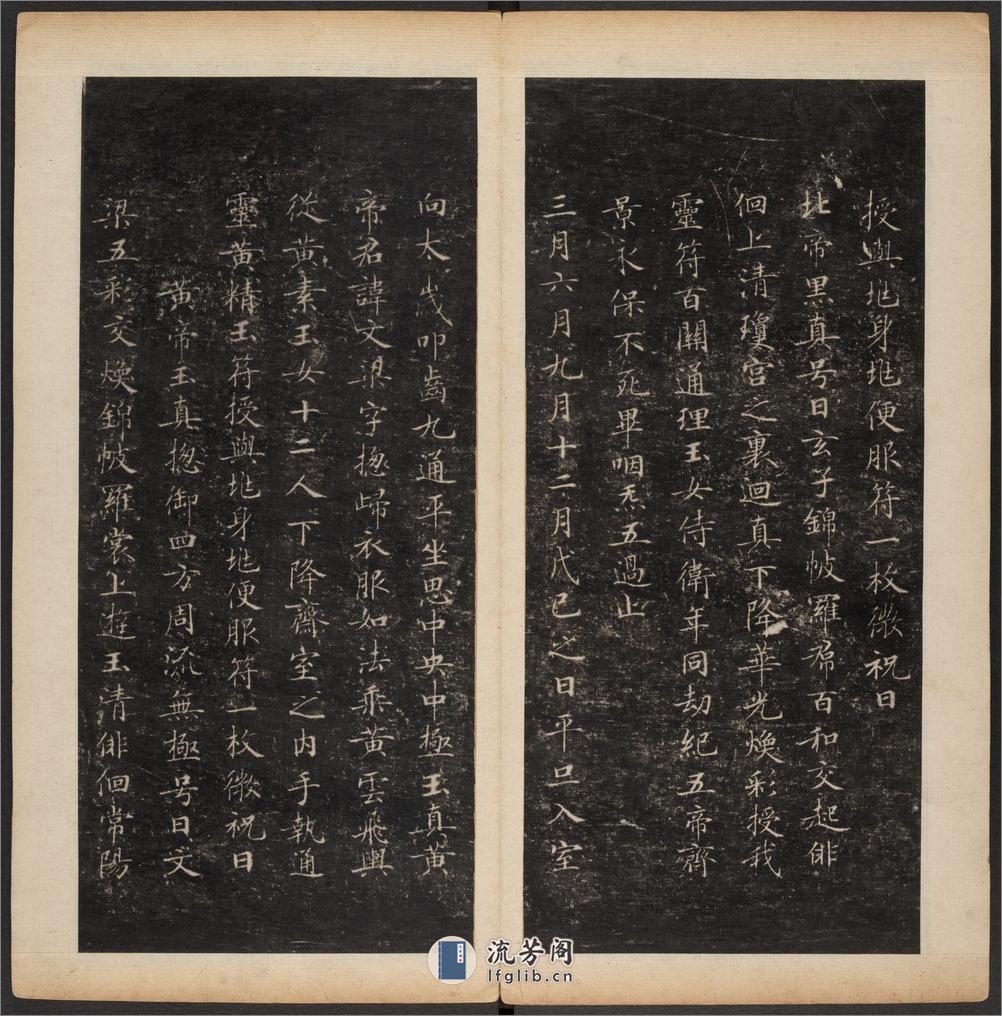 授與地身地便服符一枚微祝曰
北帝黑真号曰玄子錦帔羅帬百和交起俳
佪上清瓊宮之裏迴真下降華光煥彩授我
靈符百關通理玉女侍衛年同劫紀五帝齊
景永保不死畢咽炁五過止
三月六月九月十二月戊巳之日平旦入室
向太歲叩齒九通平坐思中央中極玉真黃
帝君諱文梁字揔歸衣服如法乘黃雲飛輿
從黃素玉女十二人下降齋室之內手執通
靈黃精玉符授與地身地便服符一枚微祝曰
黃帝玉真揔御四方周流無極号曰文
梁五彩交煥錦帔羅裳上遊玉清俳佪常陽
流芳阁
lfglib.cn